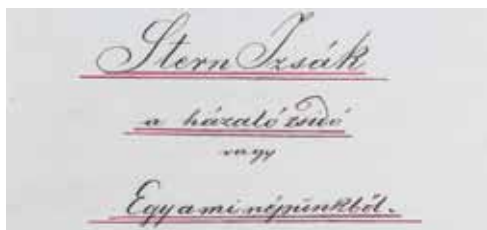 Stern Izsák
a házaló zsidó
vagy
Egy a mi népünkből.